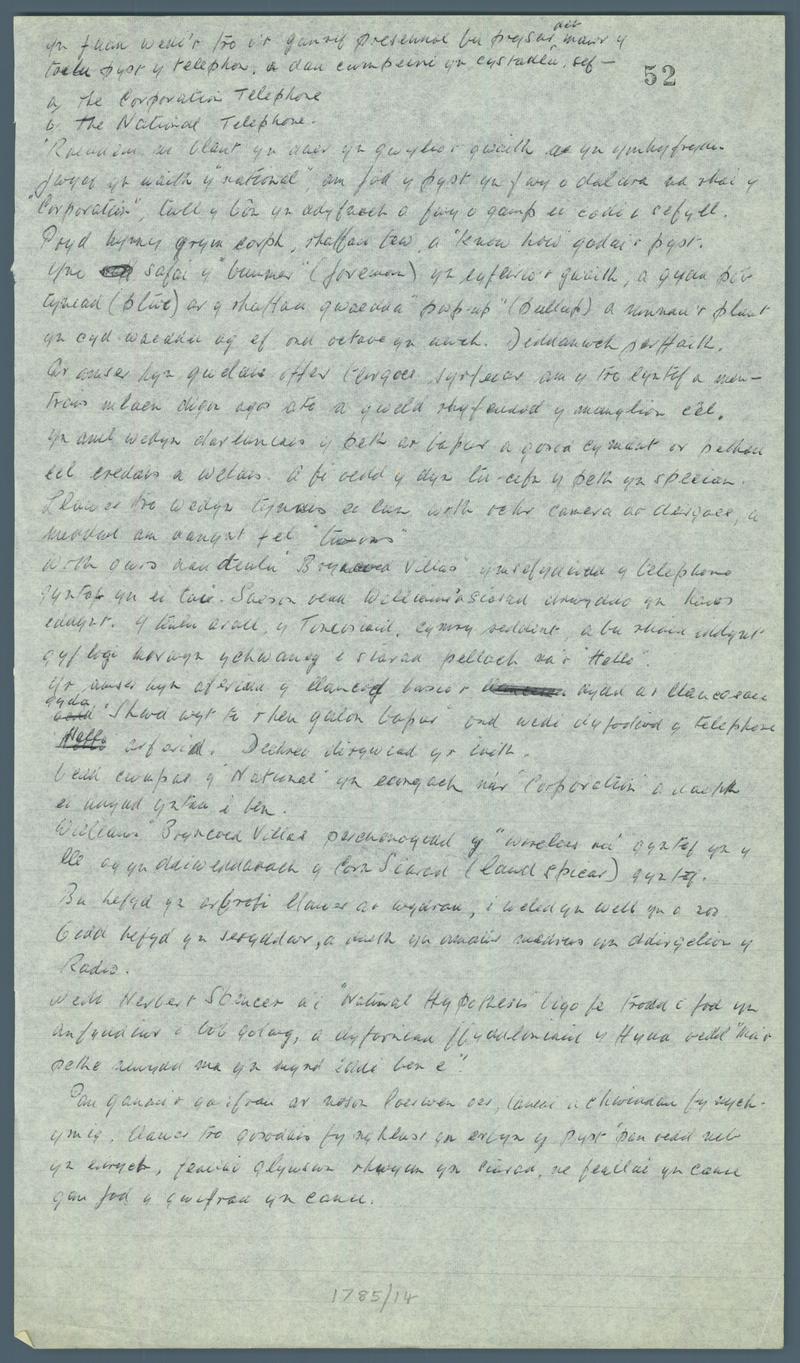 yn fuan wedi'r tro i'r ganrif presennol bu prysurdeb mawr y
torlu pyst y telephon, a dau cwmpeini yn cystadlu, sef—
52
a, The Corporation Telephone
b, The National Telephone.
'Roeddem ni blant yn aner yn gwylio'r gwaith yn ymhyfrydu
fwyaf yn waith y "national", am fod y pyst yn fwy o daldra na rhai y
"Corporation", twll y bôn yn ddyfnach a fwy o gamp ei codi i sefyll.
Pryd hynny grym corph, rhaffau tew, a "know how" godai'r pyst.
Yno safai y "bummer" (foreman) yn cyfeirio'r gwaith, a gyda pob
tyniad (plwc) ar y rhaffau gwaedda "pwp-up" (pullup) a ninnau'r plant
yn cyd-waeddu ag ef ond octave yn uwch. Diddanwch perffaith.
Ar amser hyn gwelais offer tirgoes syrfewr am y tro cyntaf a men-
trais mlaen digon agos ato a gweld rhyfeddod y manylion cêl.
yn aml wedyn darluniais y peth ar bapur a gosod cymaint o'r pethau
cêl credais a welais. A fi oedd y dyn tu-cefn y peth yn specian.
Llawer tro wedyn tynnais ei lun with ochr camera ar deirgoes, a
meddwl am danynt fel "twins"
With ours dau deulu "Bryncoed Villas" ymsefydlodd y telephone
gyntaf yn ei tai. Saeson oedd Williams'n siarad drwyddo yn haws
iddynt. Y teulu arall, y Tomosiaid, cymry oeddint, a bu rhaid iddynt
gyflogi morwyn ychwaneg i siarad pellach na'r "Hello".
Yr amser hyn arferiad y llancod basio'r dydd ar llancesau
gyda "Shwd wyt ti rhen galon bapur" ond wedi dyfodiad y telephone
Hello arferid. Dechreu dirywiad yr iaith.
Oedd cwmpas y "National" yn eangach na'r "Corporation" a daeth
ei unydd yntau i ben.
Williams "Bryncoed Villas" perchenogodd y "wireless set" gyntaf yn y
lle ag yn ddiweddarach y Corn Siarad (loud spicar) gyntaf.
Bu hefyd yn arbrofi llawer ar wydrau, i weled yn well yn o
Oedd hefyd yn seryddwr, a daeth yn amatur medrus yn ddirgelion y
Radio.
Wedi Herbert Spencer a'i "Natural Hypothesis" bigo fe trodd i fod yn
anffyddiwr i bob golwg, a dyfarniad ffyddloniaid y Hyda oedd "Ma'r
pethe newydd ma yn mynd idde ben e"!
Pan ganai'r gwifrau ar noson loerwen oer, taniai chwiwdau fy nych-
ymig. Llawer tro gosodais fy nghlust yn erbyn y pyst pan oedd neb
yn edrych, feallai glywswn rhywun yn siarad, ne feallai yn canu
gan fod y gwifrau yn canu.
1785/14